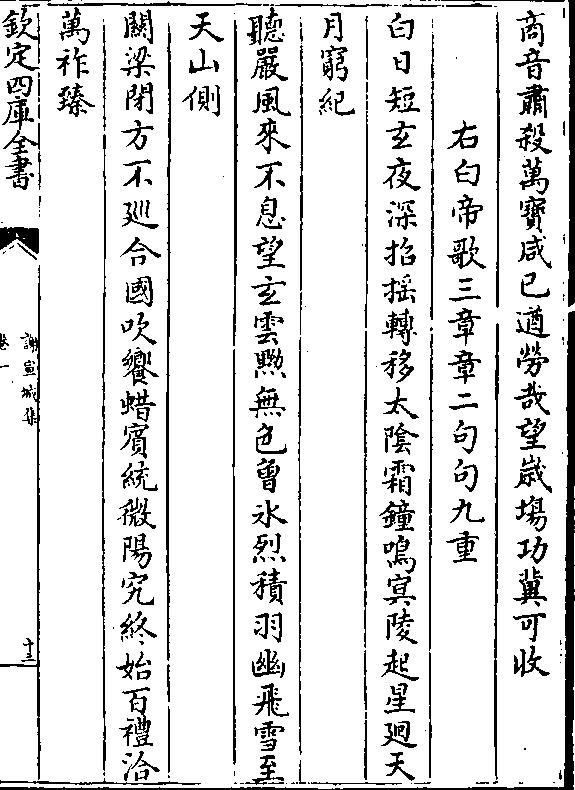 商音肅殺萬寶咸已遒勞哉望嵗場功冀可收
右白帝歌三章章二句句九重
白日短玄夜深招揺轉移太陰霜鐘鳴㝠陵起星廻天
月窮紀
聽嚴風來不息望玄雲黝無色曽氷烈積羽幽飛雪至
天山側
闗梁閉方不廵合國吹饗蜡賔統微陽究終始百禮洽
萬祚臻
欽定四庫全書
謝宣城集
卷一
十三